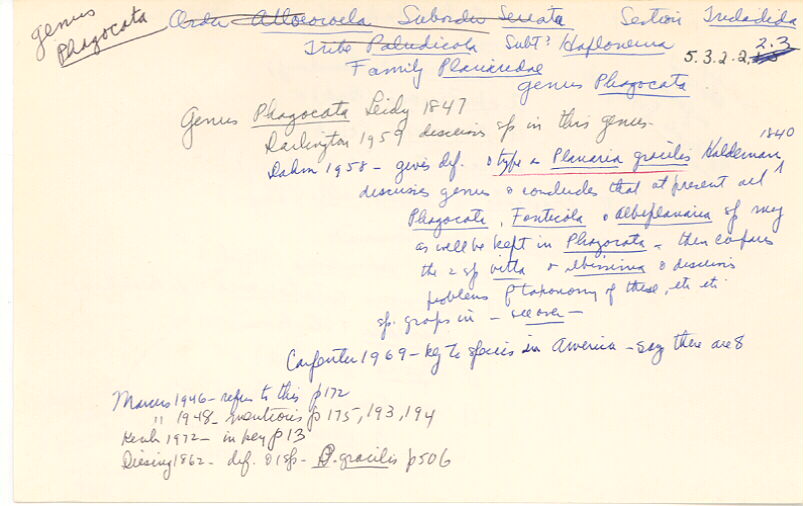 genus
Phagocata
Order Alloeocoela Suborder Seriata Section Tricladida
Tribe Paludicola Subt? Haplonema 2.3
5.3.2.2.
Family Planaridae
genus Phagocata
Genus Phagocata Leidy 1847
Darlington 1959 discusses sp in this genus.
1840
Dahm 1958 - gives def. & type = Planaria gracilis Haldeman
discusses genus & concludes that at present all
Phagocata, Fonticola & Albiplanaria sp may
as well be kept in Phagocata - then compares
the 2 sp vitta & & discusses
problems of taxonomy of these, etc etc
sp. groups in - see over -
Carpenter 1969 - key to species in America - say there are 8
Marcus 1946 - refers to this p172
" 1948 - mentions p 175, 193, 194
Kenk 1972 - in key p 13
Diesing 1862 - def. & 1 sp - P. gracilis p506